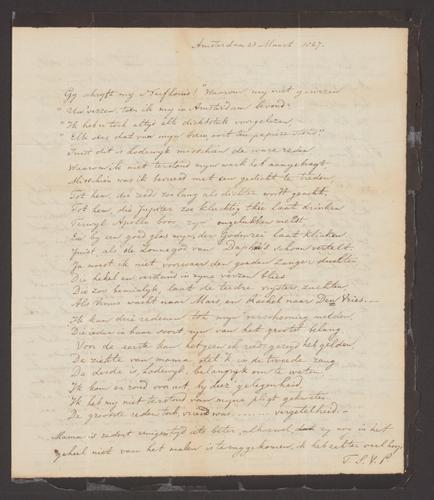 Amsterdam 23 Maart 1827.
Gy schryft my, "Waarom my niet gewezen
"Uw verzen, toen ik my in Amsterdam bevond?
"Ik heb u toch altyd elk dichtstuk voorgelezen
"Elk dat van myn brein ooit op papier stond"
Juist dit is Lodewyk misschien de ware reden
Waarom ik niet terstond myn werk het
Misschien was ik bevreesd met een gedicht te treden
Tot hem, die reeds zoo lang als dichter wordt geacht,
Tot hem, die Jupiter zoo kluchtig thee laat drinken
Terwyl Apollo hem zyn ongelukken meldt
En by een goed glas wyn, der Goden laat klinken
Juist als de Zonnegod van Daphne schoon vertelt.
Ja moest ik niet voorwaar den grooten Zanger duchten
Die hekel en verstand in zyne verzen blies
Die zoo laat de teedre vrysters zuchten
Als Venus wacht naar Mars, en Rachel naar De Vries.
Ik kan drie redenen tot myn verschooning melden,
Die ieder in haar soort zyn van het grootst belang
Voor de eerste kan hetgeen ik reeds gezegd heb gelden
De ziekte van mama stel ik in de tweede rang
De derde is, Lodewyk, belangryk om te weten
Ik kom er rond voor uit, by deez' gelegenheid,
Ik heb my niet terstond van myne pligt gekweten
De grootste reden toch, vriend was ........ vergetelheid.
Mama is zedert eenigen tyd iets beter, alhoewel zy nog in het
geheel niet van het malen is teruggekomen, ik heb echter veel hoop